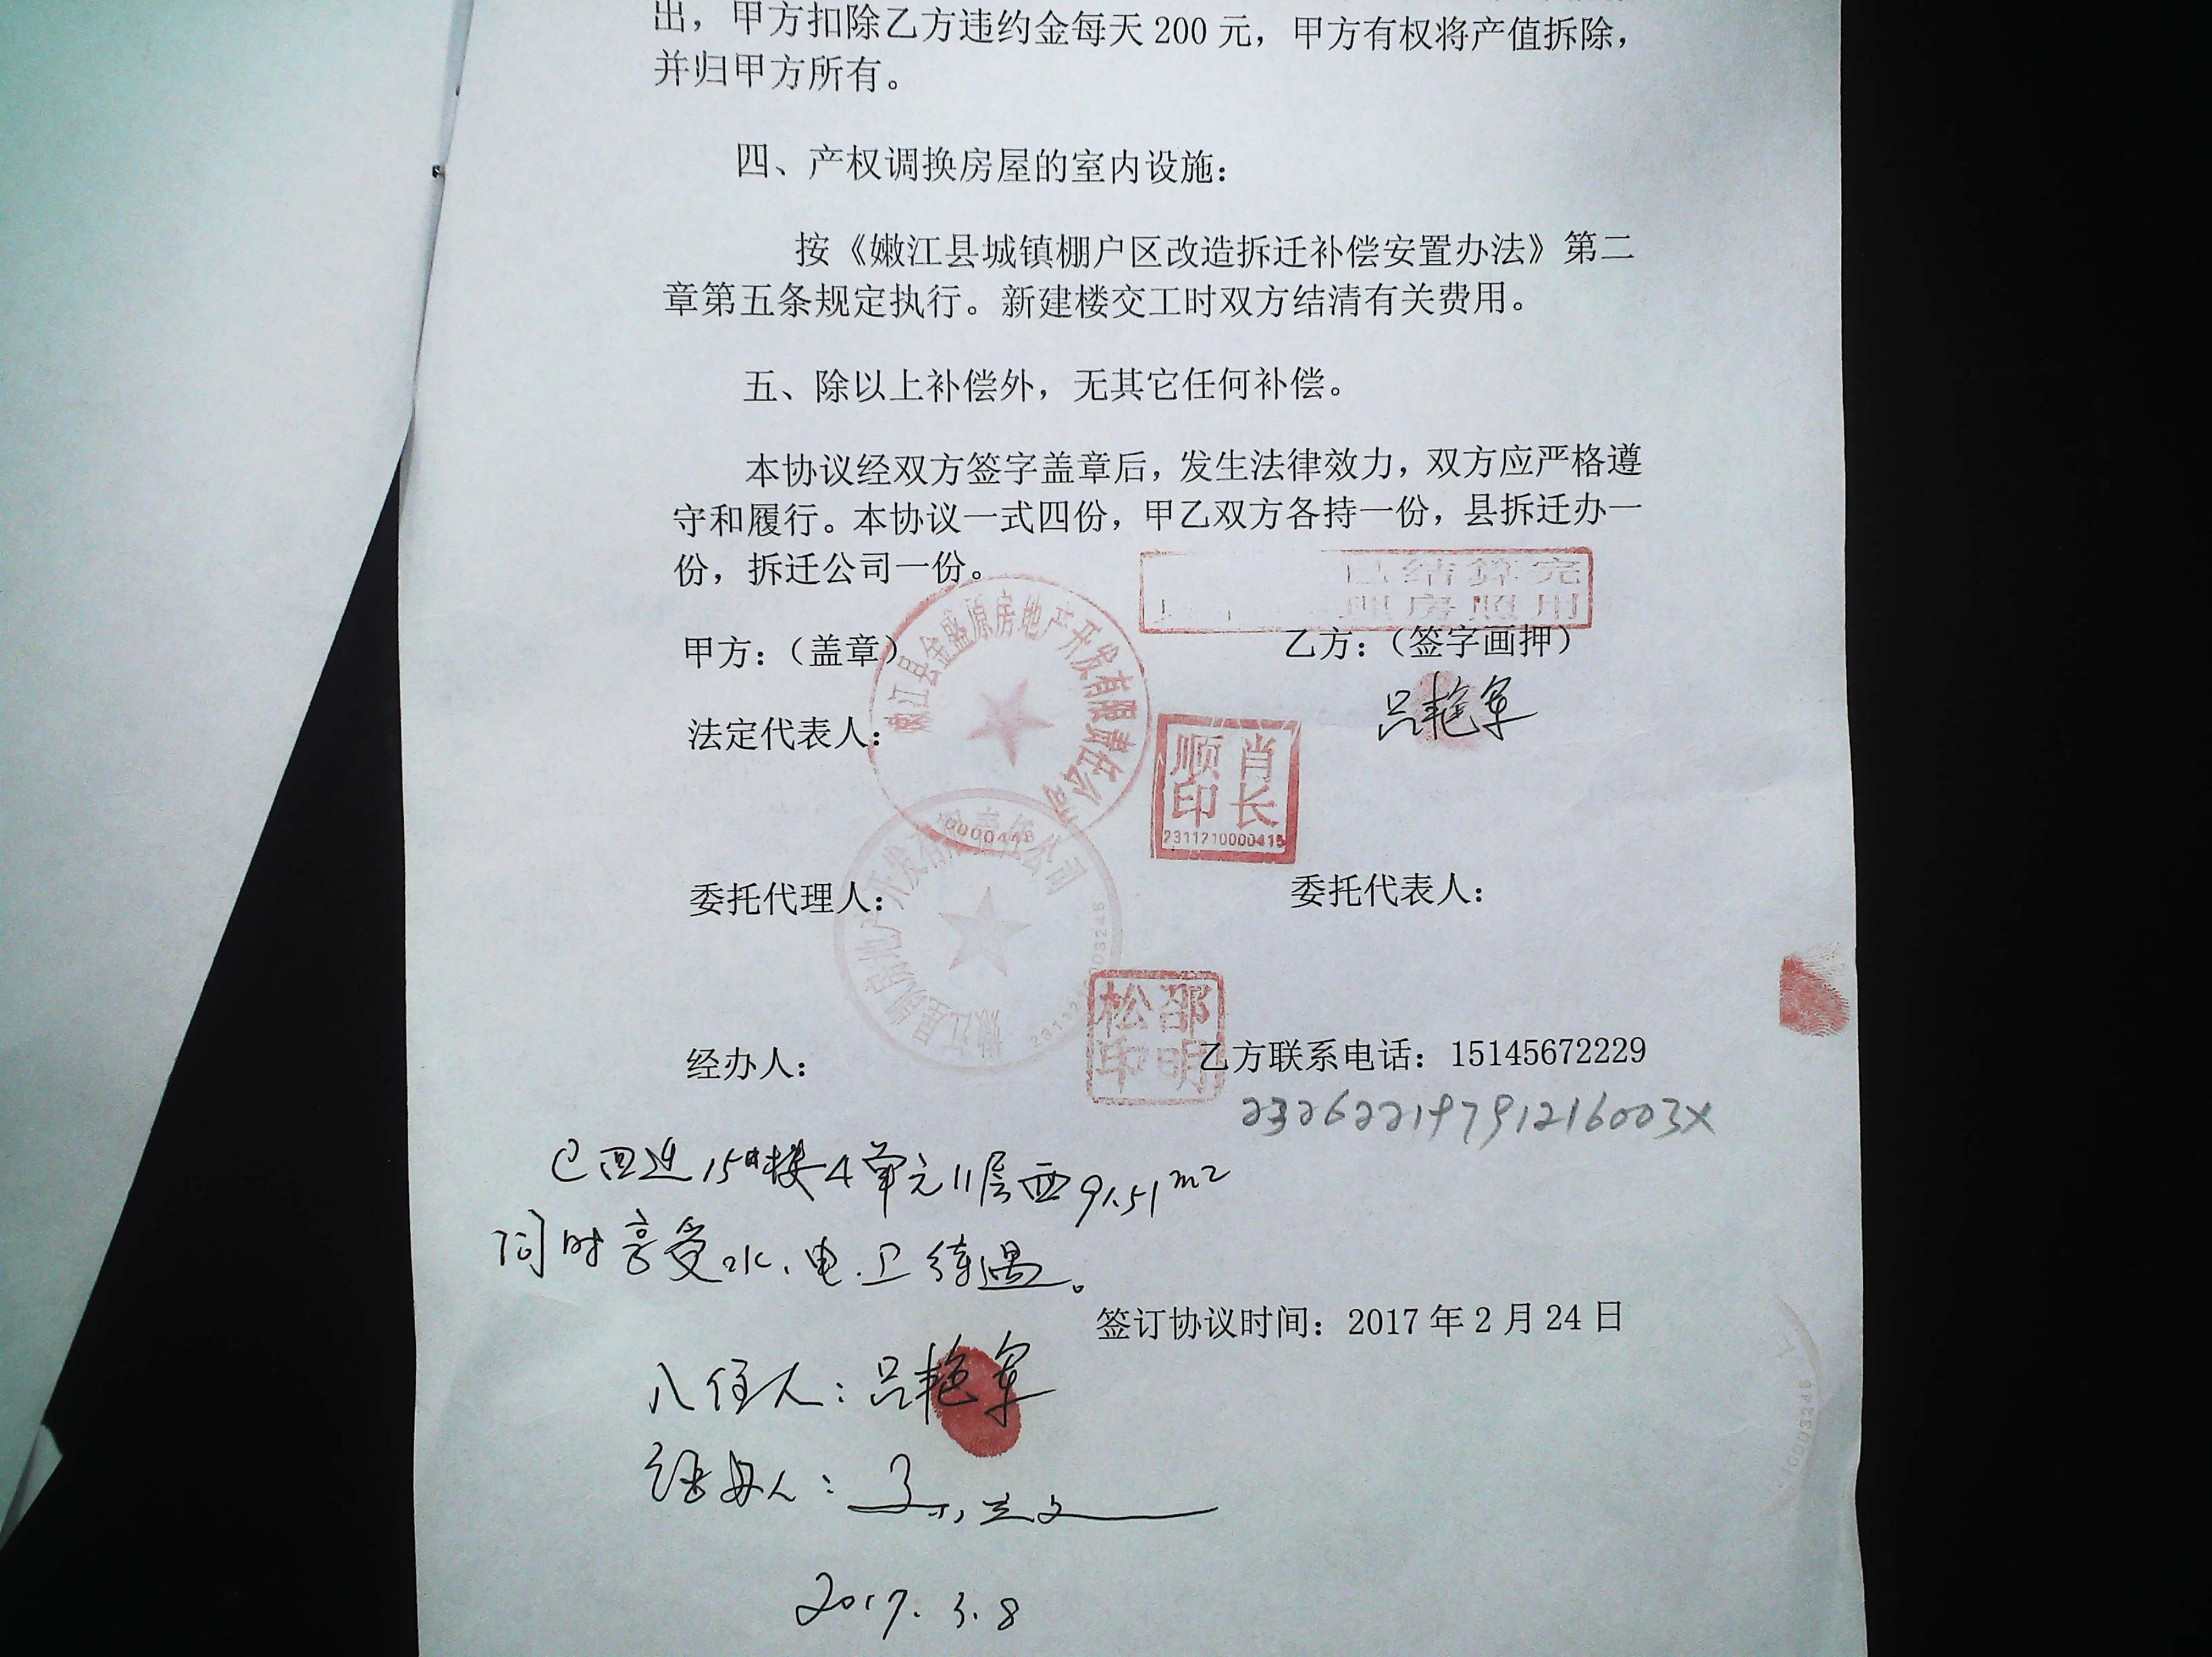 出，甲方扣除乙方违约金每天 200 元，甲方有权将产值拆除，
并归甲方所有。
四、产权调换房屋的室内设施：
按《嫩江县城镇棚户区改造拆迁补偿安置办法》第二
章第五条规定执行。新建楼交工时双方结清有关费用。
五、除以上补偿外，无其它任何补偿。
本协议经双方签字盖章后，发生法律效力，双方应严格遵
守和履行。本协议一式四份，甲乙双方各持一份，县拆迁办一
份，拆迁公司一份。
已结算完
理房照用
甲方：（盖章）
乙方：（签字画押）
嫩江县金盛源房地产开发有限责任公司
0000448
吕艳军
法定代表人：
肖长顺印
2311210000415
委托代理人：
委托代表人：
房地产开发有限责任公司
邵明松印
经办人：
乙方联系电话：15145672229
23262219791216003X
已回迁15#楼4单元11层西91.51m2
同时享受水、电.卫待遇。
签订协议时间：2017 年 2 月 24 日
入住人：吕艳军
经办人：
2017.3.8